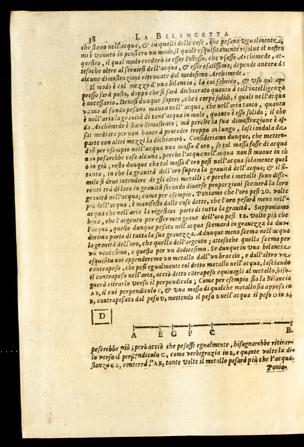 38 LA BILANCETTA
che stanno nell'acqua, & in quelli delle cose, che pesano egualmente,
mi è venuto in pensiero un modo, il quale esquisitamente risolue il nostro
quesito, il qual modo crederò io esser l'istesso, che vsasse Archimede,
alcune dimostrationi ritrouate dal medesimo Archimede.
Il modo è col mezzo d'vna bilancia, la cui fabrica, & vso qui ap-
presso sarà posto, doppo che si sarà dichiarato quanto à tall'intelligenza
è necessario. Deuesi dunque sapere, che i corpi solidi,
nell'aria la grauità di tant'acqua in mole, quanto è esso solido; il che
da Archimede è stato dimostrato; ma perche la sua dimostratione è as-
sai mediata per non hauer à procedere troppo in lungo, lasciandola da
parte con altri mezzi la dichiarerò. Consideriamo dunque, che metten-
dosi per esempio nell'acqua vna massa d'oro, se tal massa fosse di acqua
non pesarebbe cosa alcuna; perche l'acqua nell'acqua non si muoue in sù
ò in giù, resta dunque che tal massa d'oro pesi nell'acqua solamente quel
tanto, in che la grauità dell'oro supera la grauità dell'acqua & il si-
mile si deue intendere de gli altri metalli, e perche i metalli sono diffe-
renti trà di loro in grauità secondo diuerse proportioni scemerà la loro
grauità nell'acqua,
più dell'acqua, è manifesto dalle cose dette, che l'oro pesarà meno nell'
acqua che nell'aria la vigesima parte di tutta la grauità. Supponiamo
hora, che l'argento per esser men graue dell'oro pesi 12. volte più che
l'acqua, questo dunque pesato nell'acqua scemarà in grauezza la duo-
decima parte di tutta la sua grauezza. Adunque meno scema nell'acqua
la grauità dell'oro, che quella dell'argento; attesoche quella scema per
vn ventesimo, e questa per vn dodecimo. Se dunque in vna bilancia
esquisita noi appenderemo vn metallo dall'vn braccio, e dall'altro vn
contrapeso, che pesi egualmente col detto metallo nell'aria,
il contrapeso nell'aria, acciò detto contrapeso equiuaglia al metallo, biso-
gnerà ritirarlo verso il perpendicolo; Come per esempio sia la Bilancia
AB, il cui perpendicolo C, & vna massa di qualche metallo sia appesa in
B, contrapesata dal peso D, mettendo il peso B nell'acqua il peso D in A
D
A E F G C B
peserebbe più; però acciò che pesasse egualmente, bisognarebbe ritirar-
lo verso il perpendicolo C, come verbigratia in E, e quante volte la di-
stanza CA, conterrà AB, tante volte il metallo pesarà più che l'acqua.
Ponia-